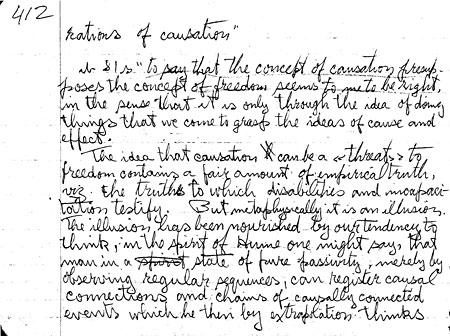 412
rations of causation"
is "to say that the concept of causation presup-
poses the concept of freedom seems to me to be right,
in the sense that it is only through the idea of doing
things that we come to grasp the ideas of cause and
effect.
The idea that causation can be a "threat" to
freedom contains a fair amount of empirical truth,
viz. the truths to which disabilities and incapaci-
tation testify. But metaphysically it is an illusion.
The illusion has been nourished by our tendency to
think, in the spirit of Hume one might say, that
man in a state of pure passivity, merely by
observing regular sequences, can register causal
connections and chains of causally connected
events which he then by extrapolation thinks